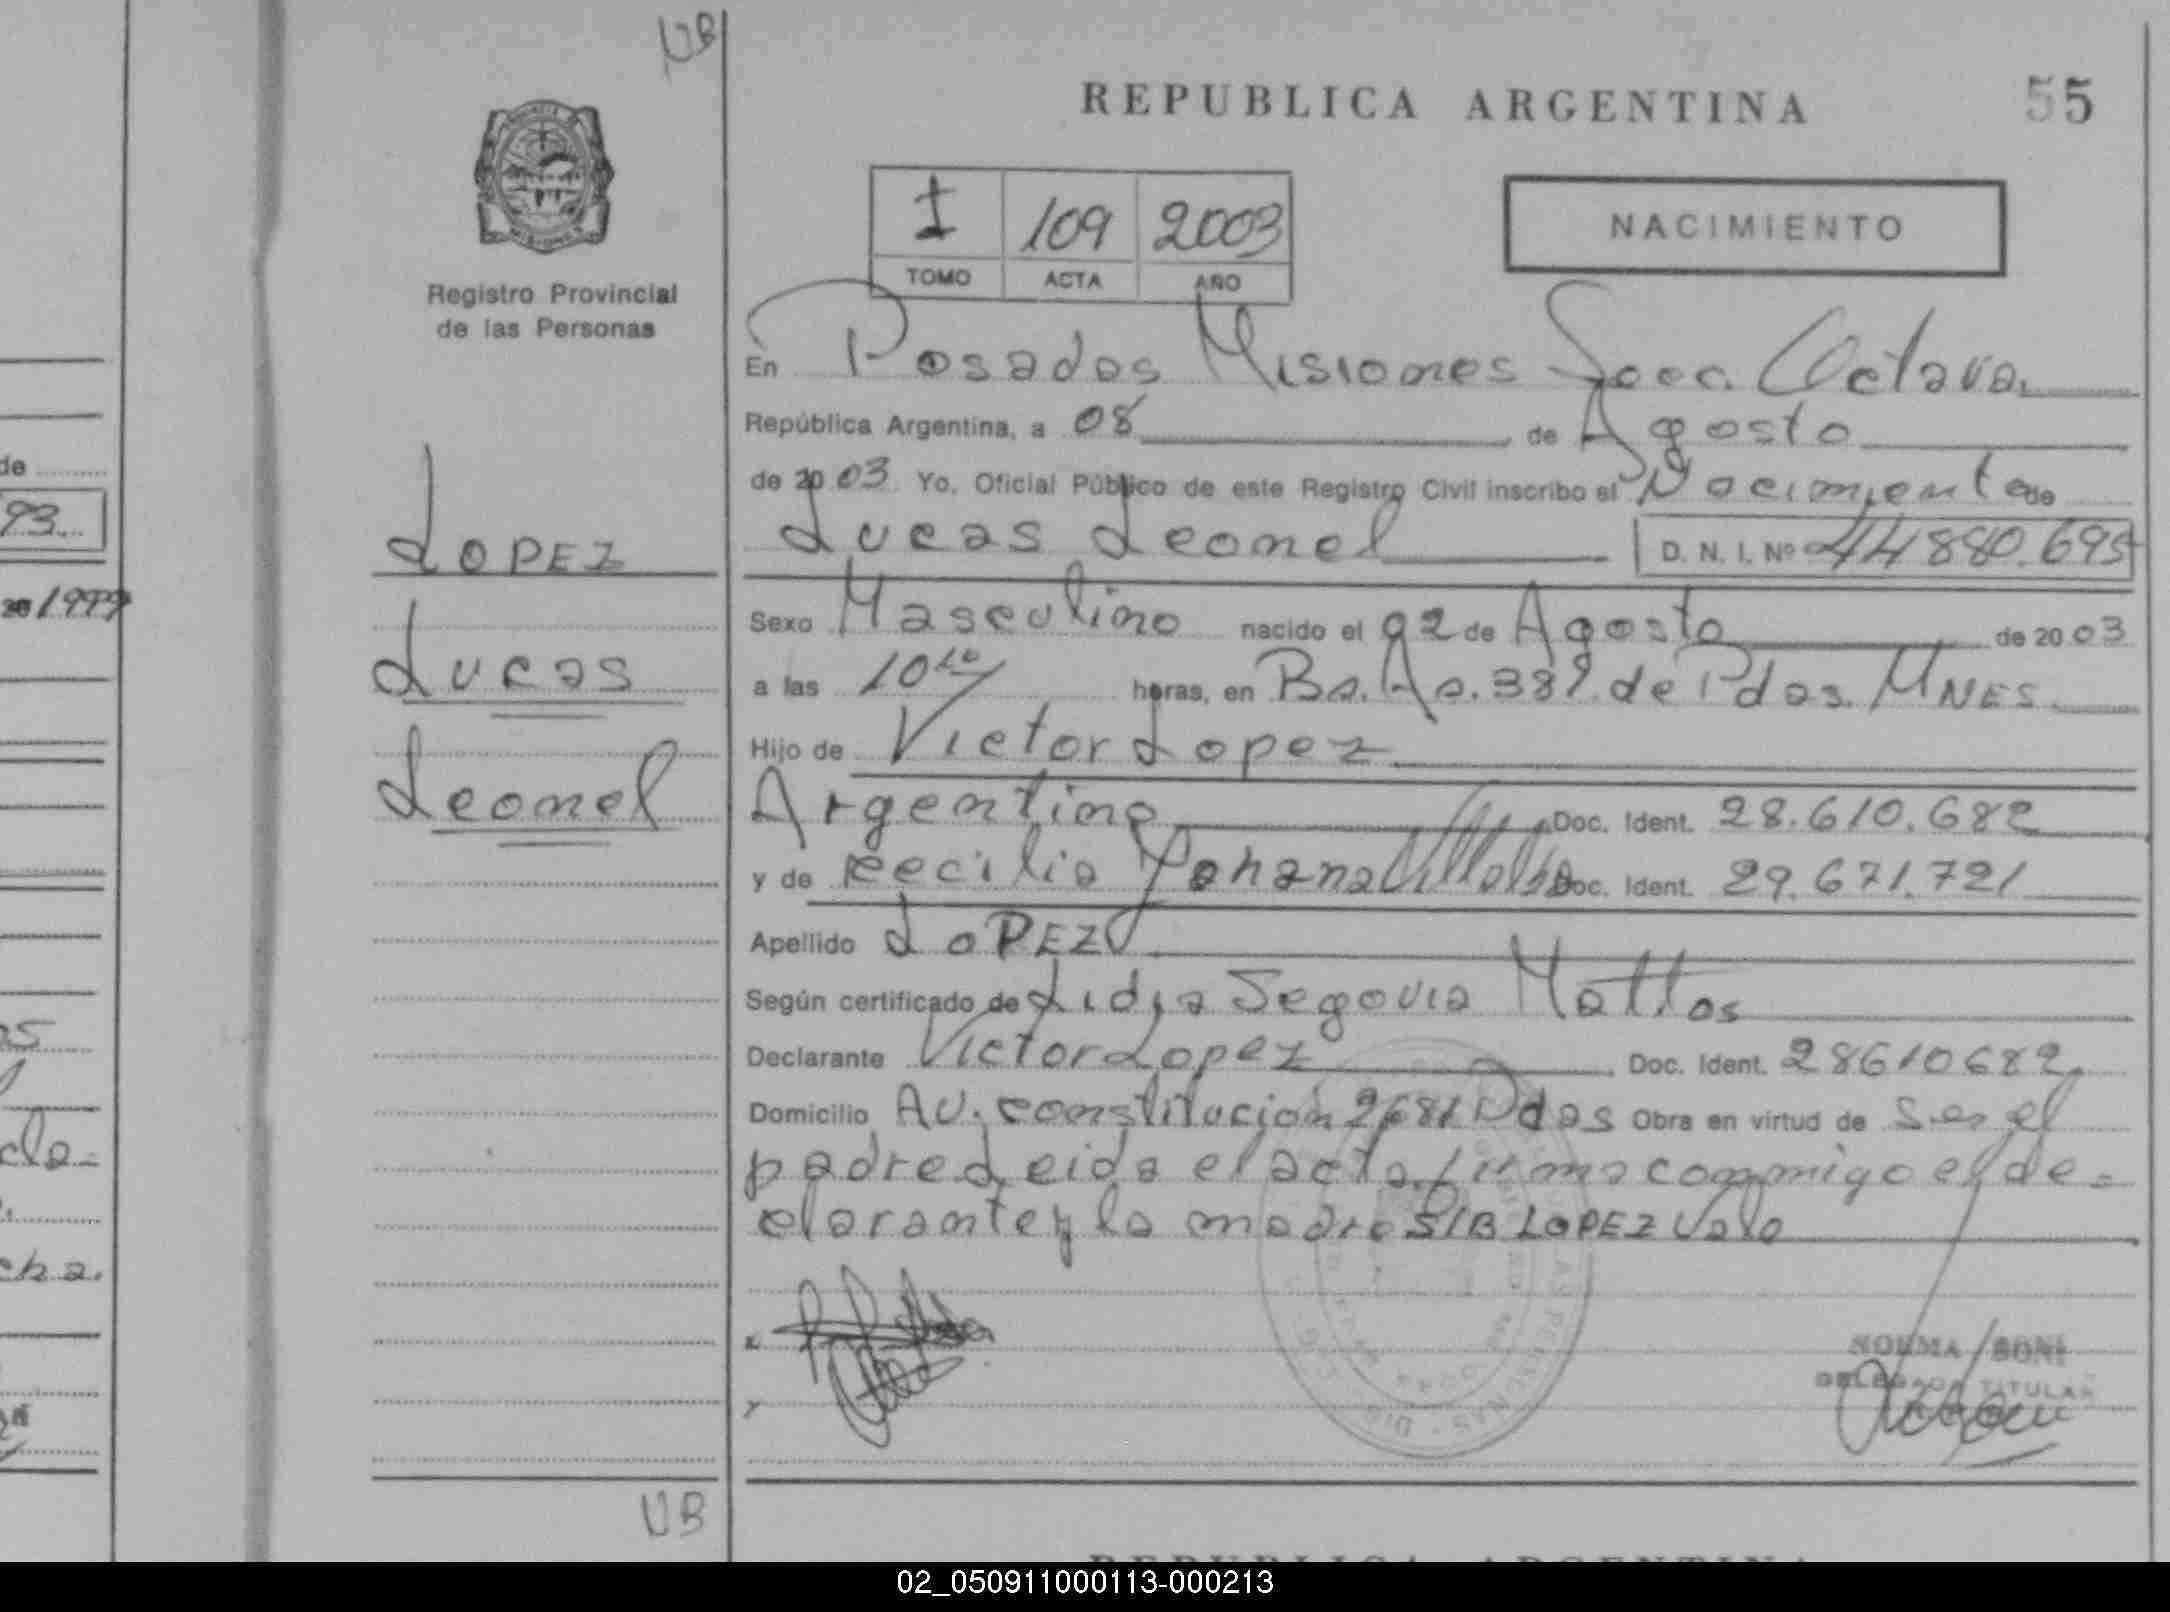 UB
REPUBLICA ARGENTINA
55
I 109 2003
TOMO ACTA AÑO
NACIMIENTO
Registro Provincial
de las Personas
LOPEZ
Lucas
Leonel
En Posadas Misiones Secc. Octava
República Argentina, a 08 de Agosto
de 20 03 Yo, Oficial Público de este Registro Civil inscribo el Nacimiento de
Lucas Leonel D. N. I. Nº 44880.695
Sexo Masculino nacido el 02 de Agosto de 20 03
a las 10 10 horas, en Bs. As. 389 de Pdas. MNES
Hijo de Victor Lopez
Argentino Doc. Ident. 28.610.682
y de Cecilia Yohana Villalba Doc. Ident. 29.671.721
Apellido LOPEZ
Según certificado de Lidia Segovia Mattos
Declarante Victor Lopez Doc. Ident. 28610682
Domicilio AV. Constitucion 2681 Pdas Obra en virtud de ser el
padre Leida el acta firma conmigo el de=
clarante y la madre S/B LOPEZ Vale
NORMA BONI
DELEGADA TITULAR
UB
de
93
20 1999
cha.
REPUBLICA ARGENTINA
02_050911000113-000213